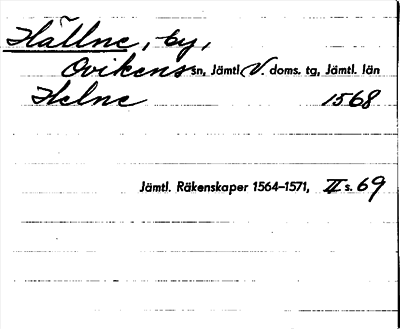 Hällne, by,
Ovikens sn, Jämtl. V. doms. tg, Jämtl. län
Helne 1568
Jämtl. Räkenskaper 1564-1571, II s. 69